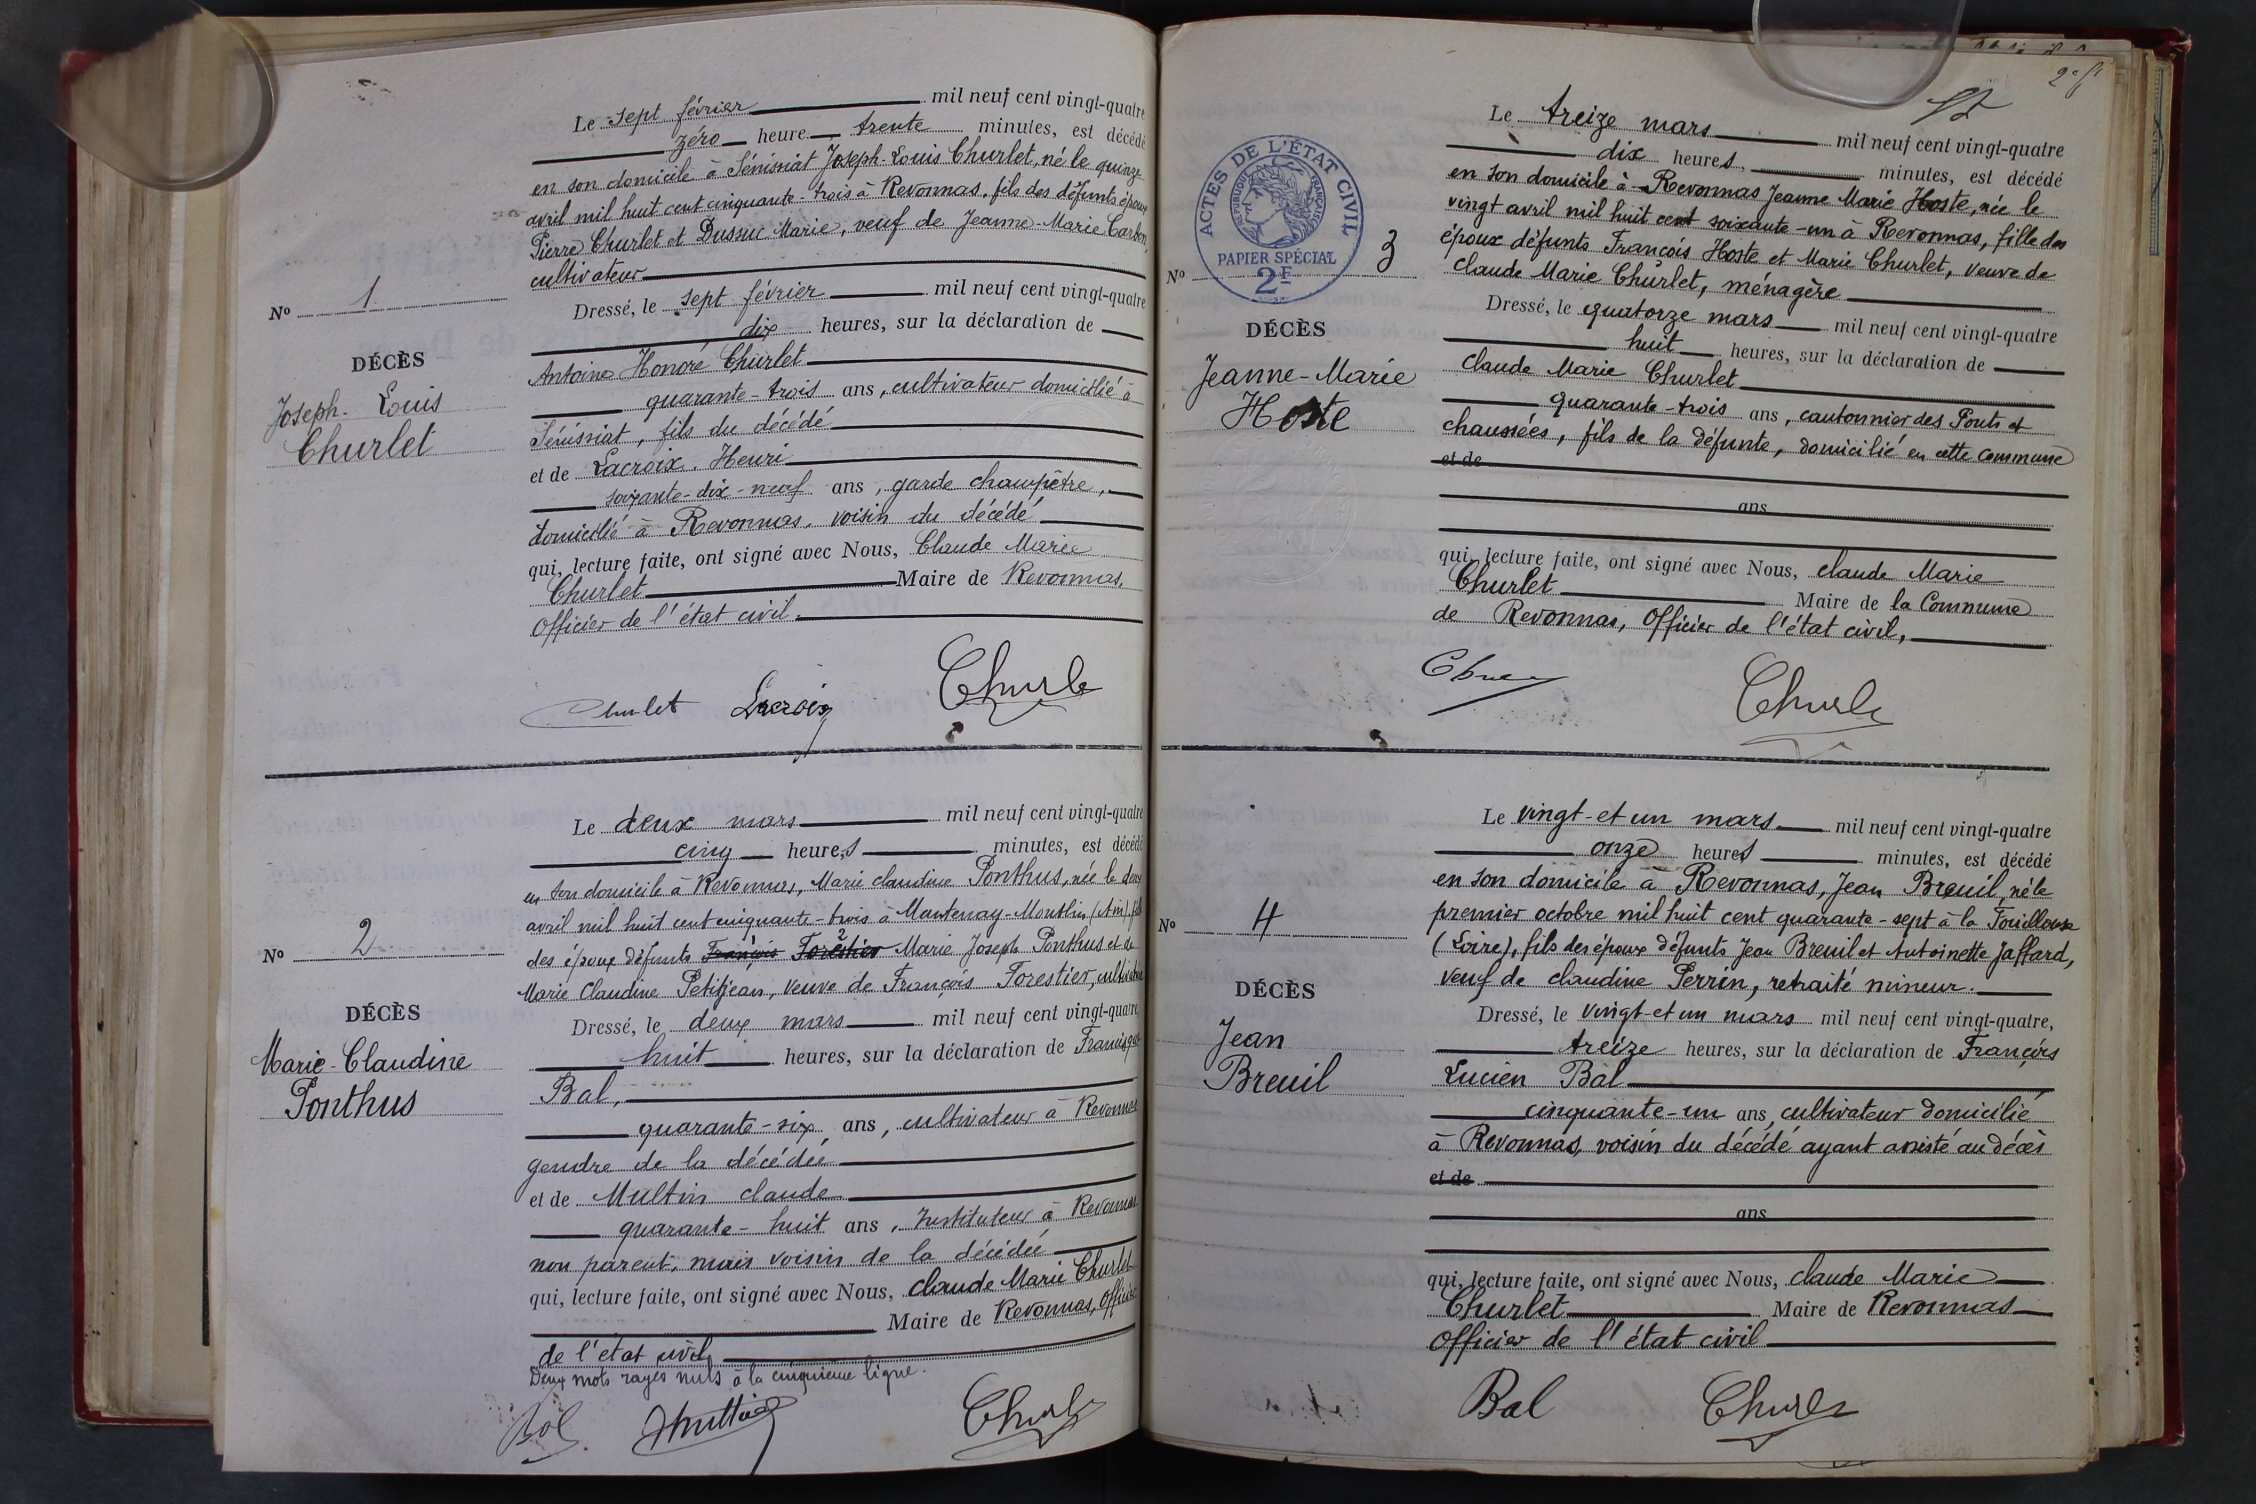 Le sept février mil neuf cent vingt-quatre
zéro heure trente minutes, est décédé
en son domicile à Sénissiat Joseph-Louis Churlet, né le quinze
avril mil huit cent cinquante-trois à Revonnas, fils des défunts époux
Pierre Churlet et Dussuc Marie, veuf de Jeanne-Marie Carbon,
cultivateur
Nº 1
DÉCÈS
Joseph-Louis
Churlet
Dressé, le sept février mil neuf cent vingt-quatre
dix heures, sur la déclaration de
Antoine Honoré Churlet
quarante-trois ans, cultivateur domicilié à
Sénissiat, fils du décédé
et de Lacroix Henri
soixante-dix-neuf ans, garde champêtre,
domicilié à Revonnas, voisin du décédé
qui, lecture faite, ont signé avec Nous, Claude Marie
Churlet Maire de Revonnas,
Officier de l'état civil.
Churlet Lacroix Churle
Le deux mars mil neuf cent vingt-quatre
cinq heures minutes, est décédé
en son domicile à Revonnas, Marie Claudine Ponthus, née le deux
avril mil huit cent cinquante-trois à Mantenay-Montlin (Ain), fille
des époux défunts François Forestier Marie Joseph Ponthus et de
Marie Claudine Petitjean, veuve de François Forestier, cultivatrice
Nº 2
DÉCÈS
Marie-Claudine
Ponthus
Dressé, le deux mars mil neuf cent vingt-quatre,
huit heures, sur la déclaration de Francisque
Bal,
quarante-six ans, cultivateur à Revonnas
gendre de la décédée
et de Multin Claude
quarante-huit ans, Instituteur à Revonnas
non parent, mais voisin de la décédée
qui, lecture faite, ont signé avec Nous, Claude Marie Churlet
Maire de Revonnas, Officier
de l'état civil
Deux mots rayés nuls à la cinquième ligne.
Bal Multin Churle
Le treize mars mil neuf cent vingt-quatre
dix heures minutes, est décédé
en son domicile à Revonnas Jeanne Marie Hoste, née le
vingt avril mil huit cent soixante-un à Revonnas, fille des
époux défunts François Hoste et Marie Churlet, veuve de
Claude Marie Churlet, ménagère
ACTES DE L'ÉTAT CIVIL
RÉPUBLIQUE FRANÇAISE
PAPIER SPÉCIAL
2F
Nº 3
DÉCÈS
Jeanne-Marie
Hoste
Dressé, le quatorze mars mil neuf cent vingt-quatre
huit heures, sur la déclaration de
Claude Marie Churlet
quarante-trois ans, cantonnier des Ponts et
chaussées, fils de la défunte, domicilié en cette commune
et de
ans
qui, lecture faite, ont signé avec Nous, Claude Marie
Churlet Maire de la Commune
de Revonnas, Officier de l'état civil,
Churle
Le vingt-et un mars mil neuf cent vingt-quatre
onze heures minutes, est décédé
en son domicile à Revonnas, Jean Breuil, né le
premier octobre mil huit cent quarante-sept à la Fouillouse
(Loire), fils des époux défunts Jean Breuil et Antoinette Jaffard,
veuf de Claudine Perrin, retraité mineur.
Nº 4
DÉCÈS
Jean
Breuil
Dressé, le vingt-et un mars mil neuf cent vingt-quatre,
treize heures, sur la déclaration de François
Lucien Bal
cinquante-un ans, cultivateur domicilié
à Revonnas, voisin du décédé ayant assisté au décès
et de
ans
qui, lecture faite, ont signé avec Nous, Claude Marie
Churlet Maire de Revonnas
Officier de l'état civil
Bal Churle